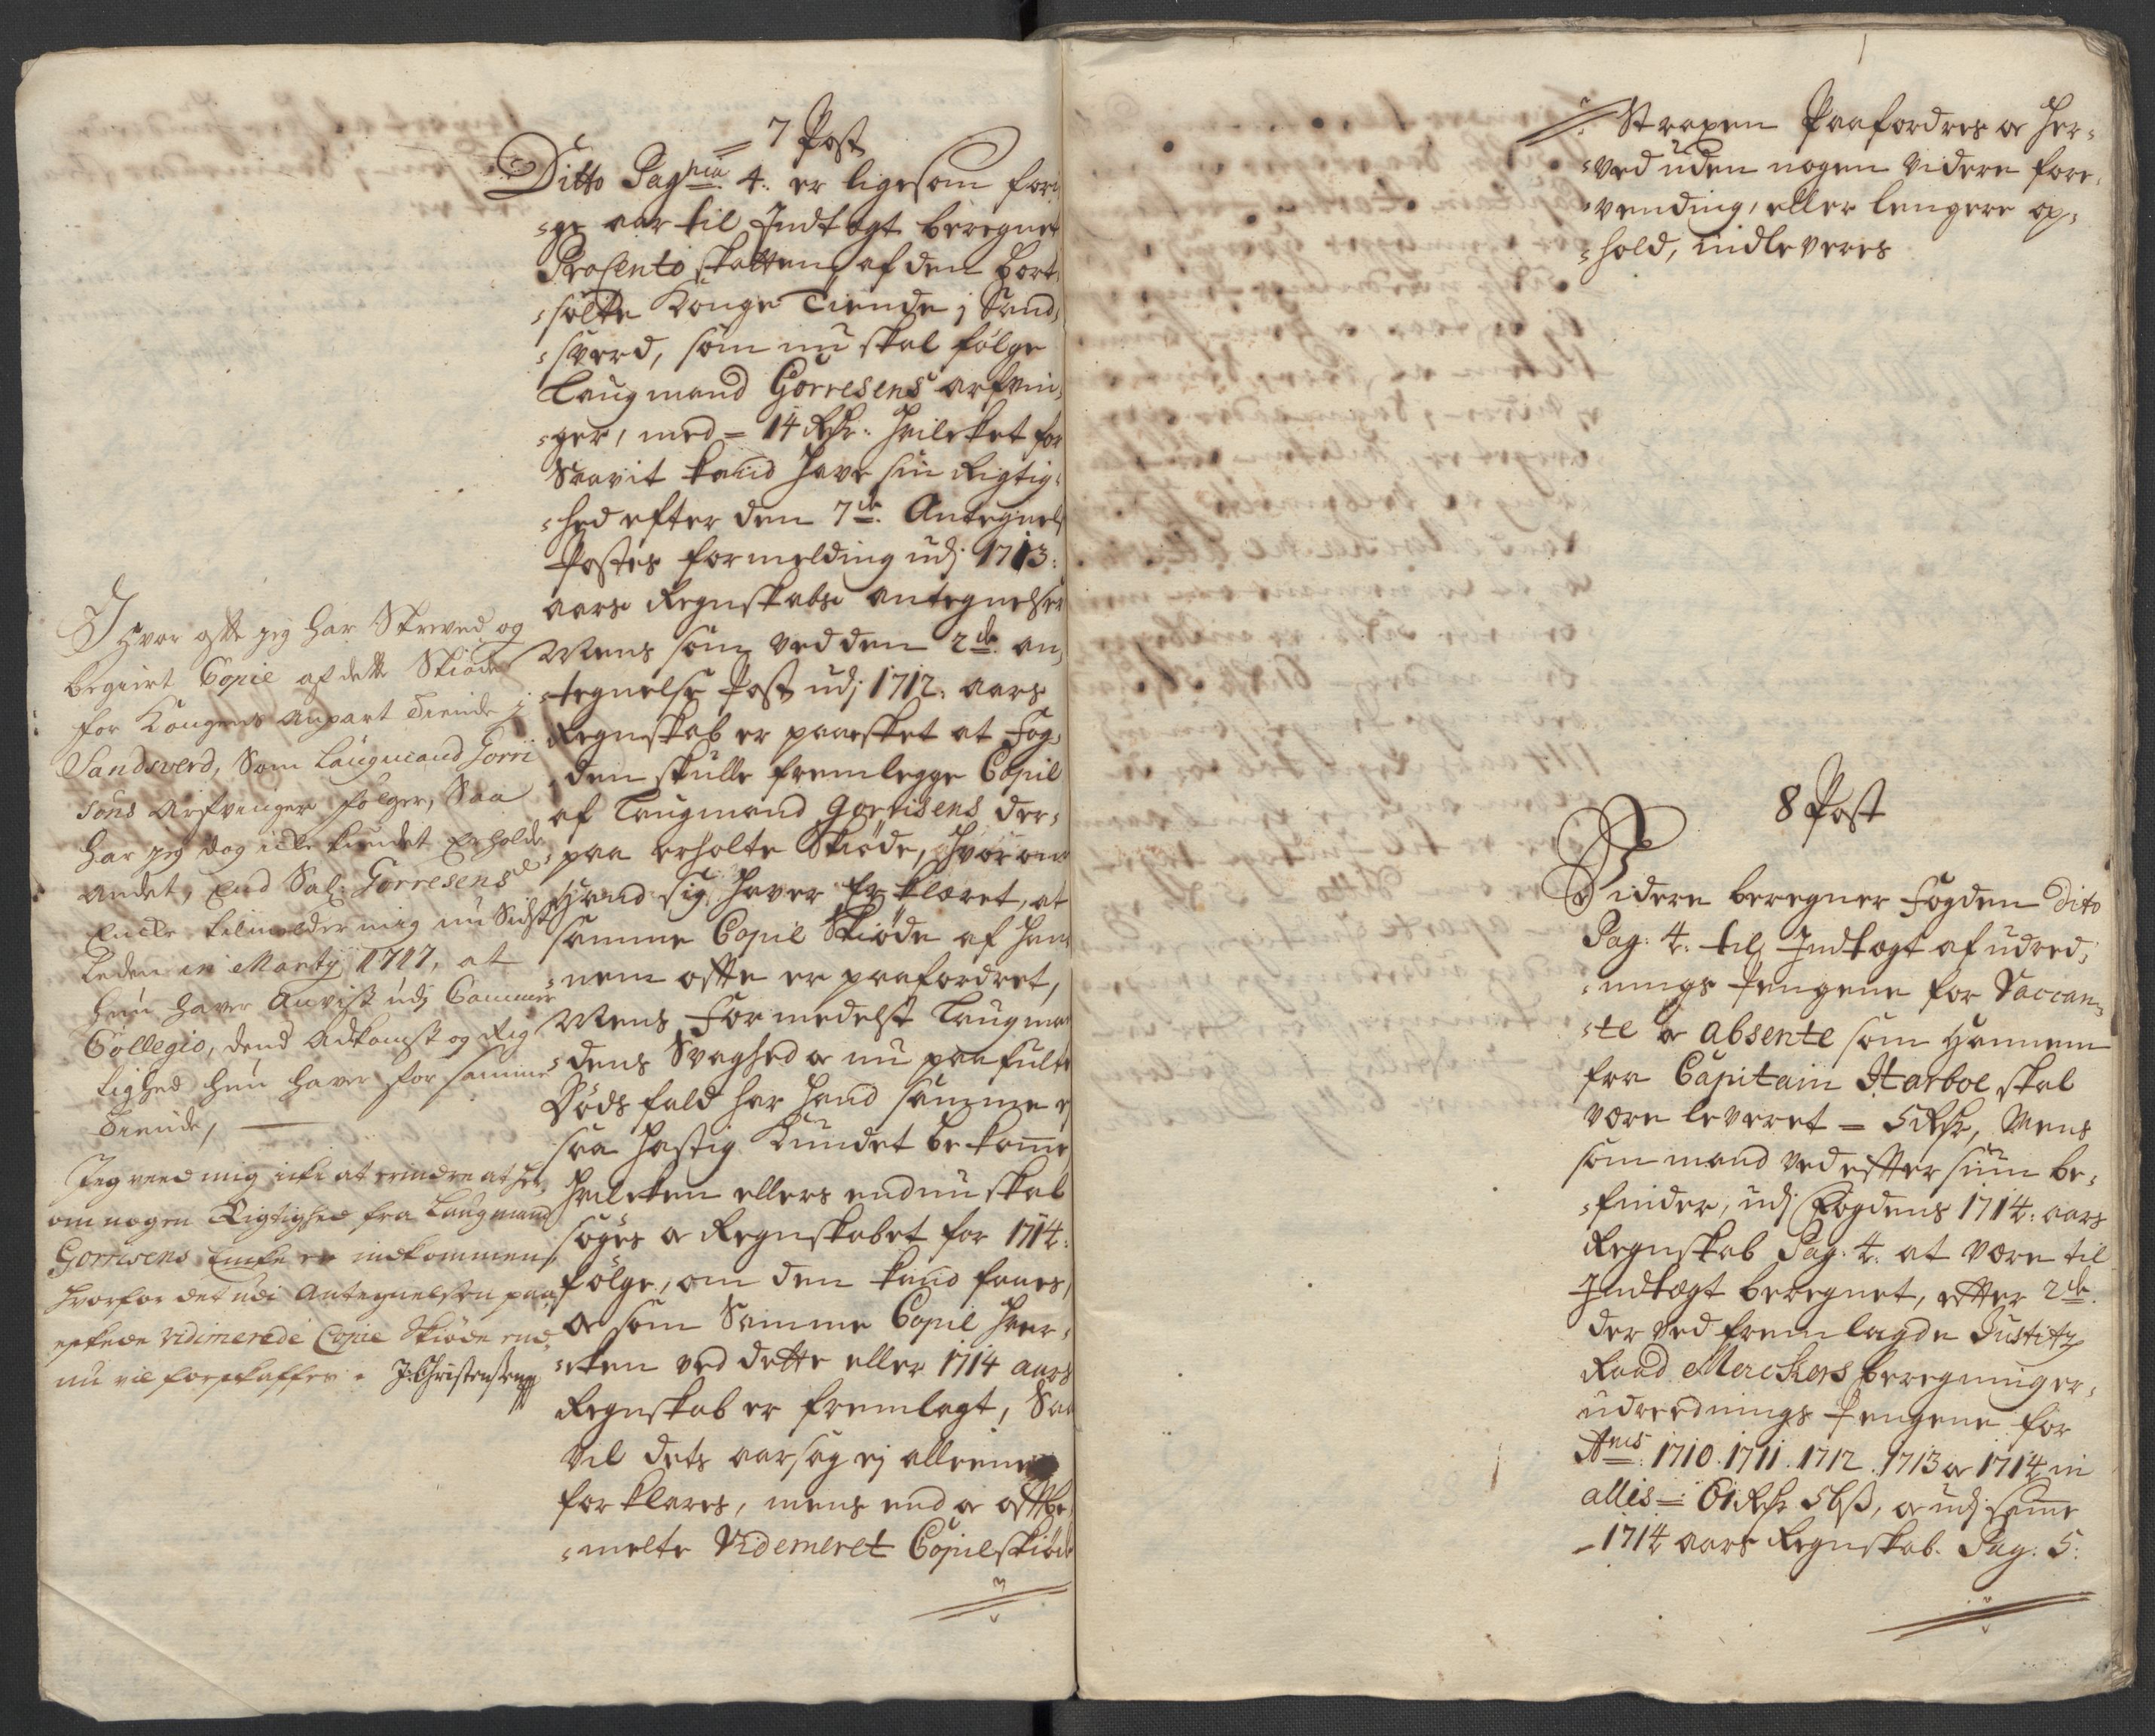 7 Post
Ditto Pagnia 4: er ligesom fori
ge aar til Indtægt beregnet
Prosento skatten af den bort
solte Konge Tiende j Sand
sverd, som nu skal følge
Laugmand Gorresens arfvin
ger, med = 14 Rdr: Hvilcket for
Saavit kand have sin Rigtig
hed efter den 7de Antegnels
Postes formelding udj 1713:
aars Regnskabs antegnelser
Mens som ved den 2de an
tegnelse Post udj 1712: aars
Regnskab er paaesket at Fog
den skulle fremlegge Copie
af Laugmand Gorrisens der
paa erholte Skiøde, hvor om
Hand sig haver Erklæret, at
samme Copie Skiøde af Han
nem offte er paafordret,
Mens Formedelst Laugman
dens Svaghed og nu paafulte
Døds fald har hand samme ej
saa hastig kundet bekomme
Hvilcken ellers endnu skal
søges og Regnskabet for 1714:
følge, om den kand faaes,
og som Samme Copie Hver
cken ved dette eller 1714 aars
Regnskab er fremlagt, Saa
vil dets aarsag ej alleene
forklares, mens end og offtbe
melte Videmeret Copie skiøde
J Hvor offte jeg har Skreved og
begiert Copie af dette Skiøde
for Kongens Anpart Tiende j
Sandsverd, Som Laugmand Gorri
sens Arfvinger følger, Saa
har jeg dog icke kundet Erholde
andet, End Sal: Gorresens
Encke tilmelder mig nu Sidst
leden in Martij 1717, at
hun haver Anvist udj Cammer
Collegio, dend Adkomst og Rig
tighed hun haver for samme
Tiende,
Jeg veed mig icke at erindre at her
om nogen Rigtighed fra Laugmand
Gorrisens Encke er indkommen,
hvorfor det udi Antegnelsen paa
eskede vidimerede Copie Skiøde end
nu vil forskaffes. J: Christensen
Straxen Paafordres og Her
ved uden nogen videre fore
vending, eller lengere op
hold, indleveres
8 Post
Videre beregner Fogden Dito
Pag: 4: til Indtægt af udred
nings Pengene for Vaccan
te og absente som Hannem
fra Capitain Harboe skal
være leveret = 5 Rdr, Mens
som mand ved efftersiun be
finder, udj Fogdens 1714: aars
Regnskab Pag: 4. at være til
Indtægt beregnet, efter 2de
der ved fremlagde Justitz
Raad Merckers beregninger
udreednings Pengene for
Anis: 1710. 1711. 1712. 1713 og 1714 in
allis = 61 Rdr 56 s, og udj samme
1714 aars Regnskab. Pag: 5: